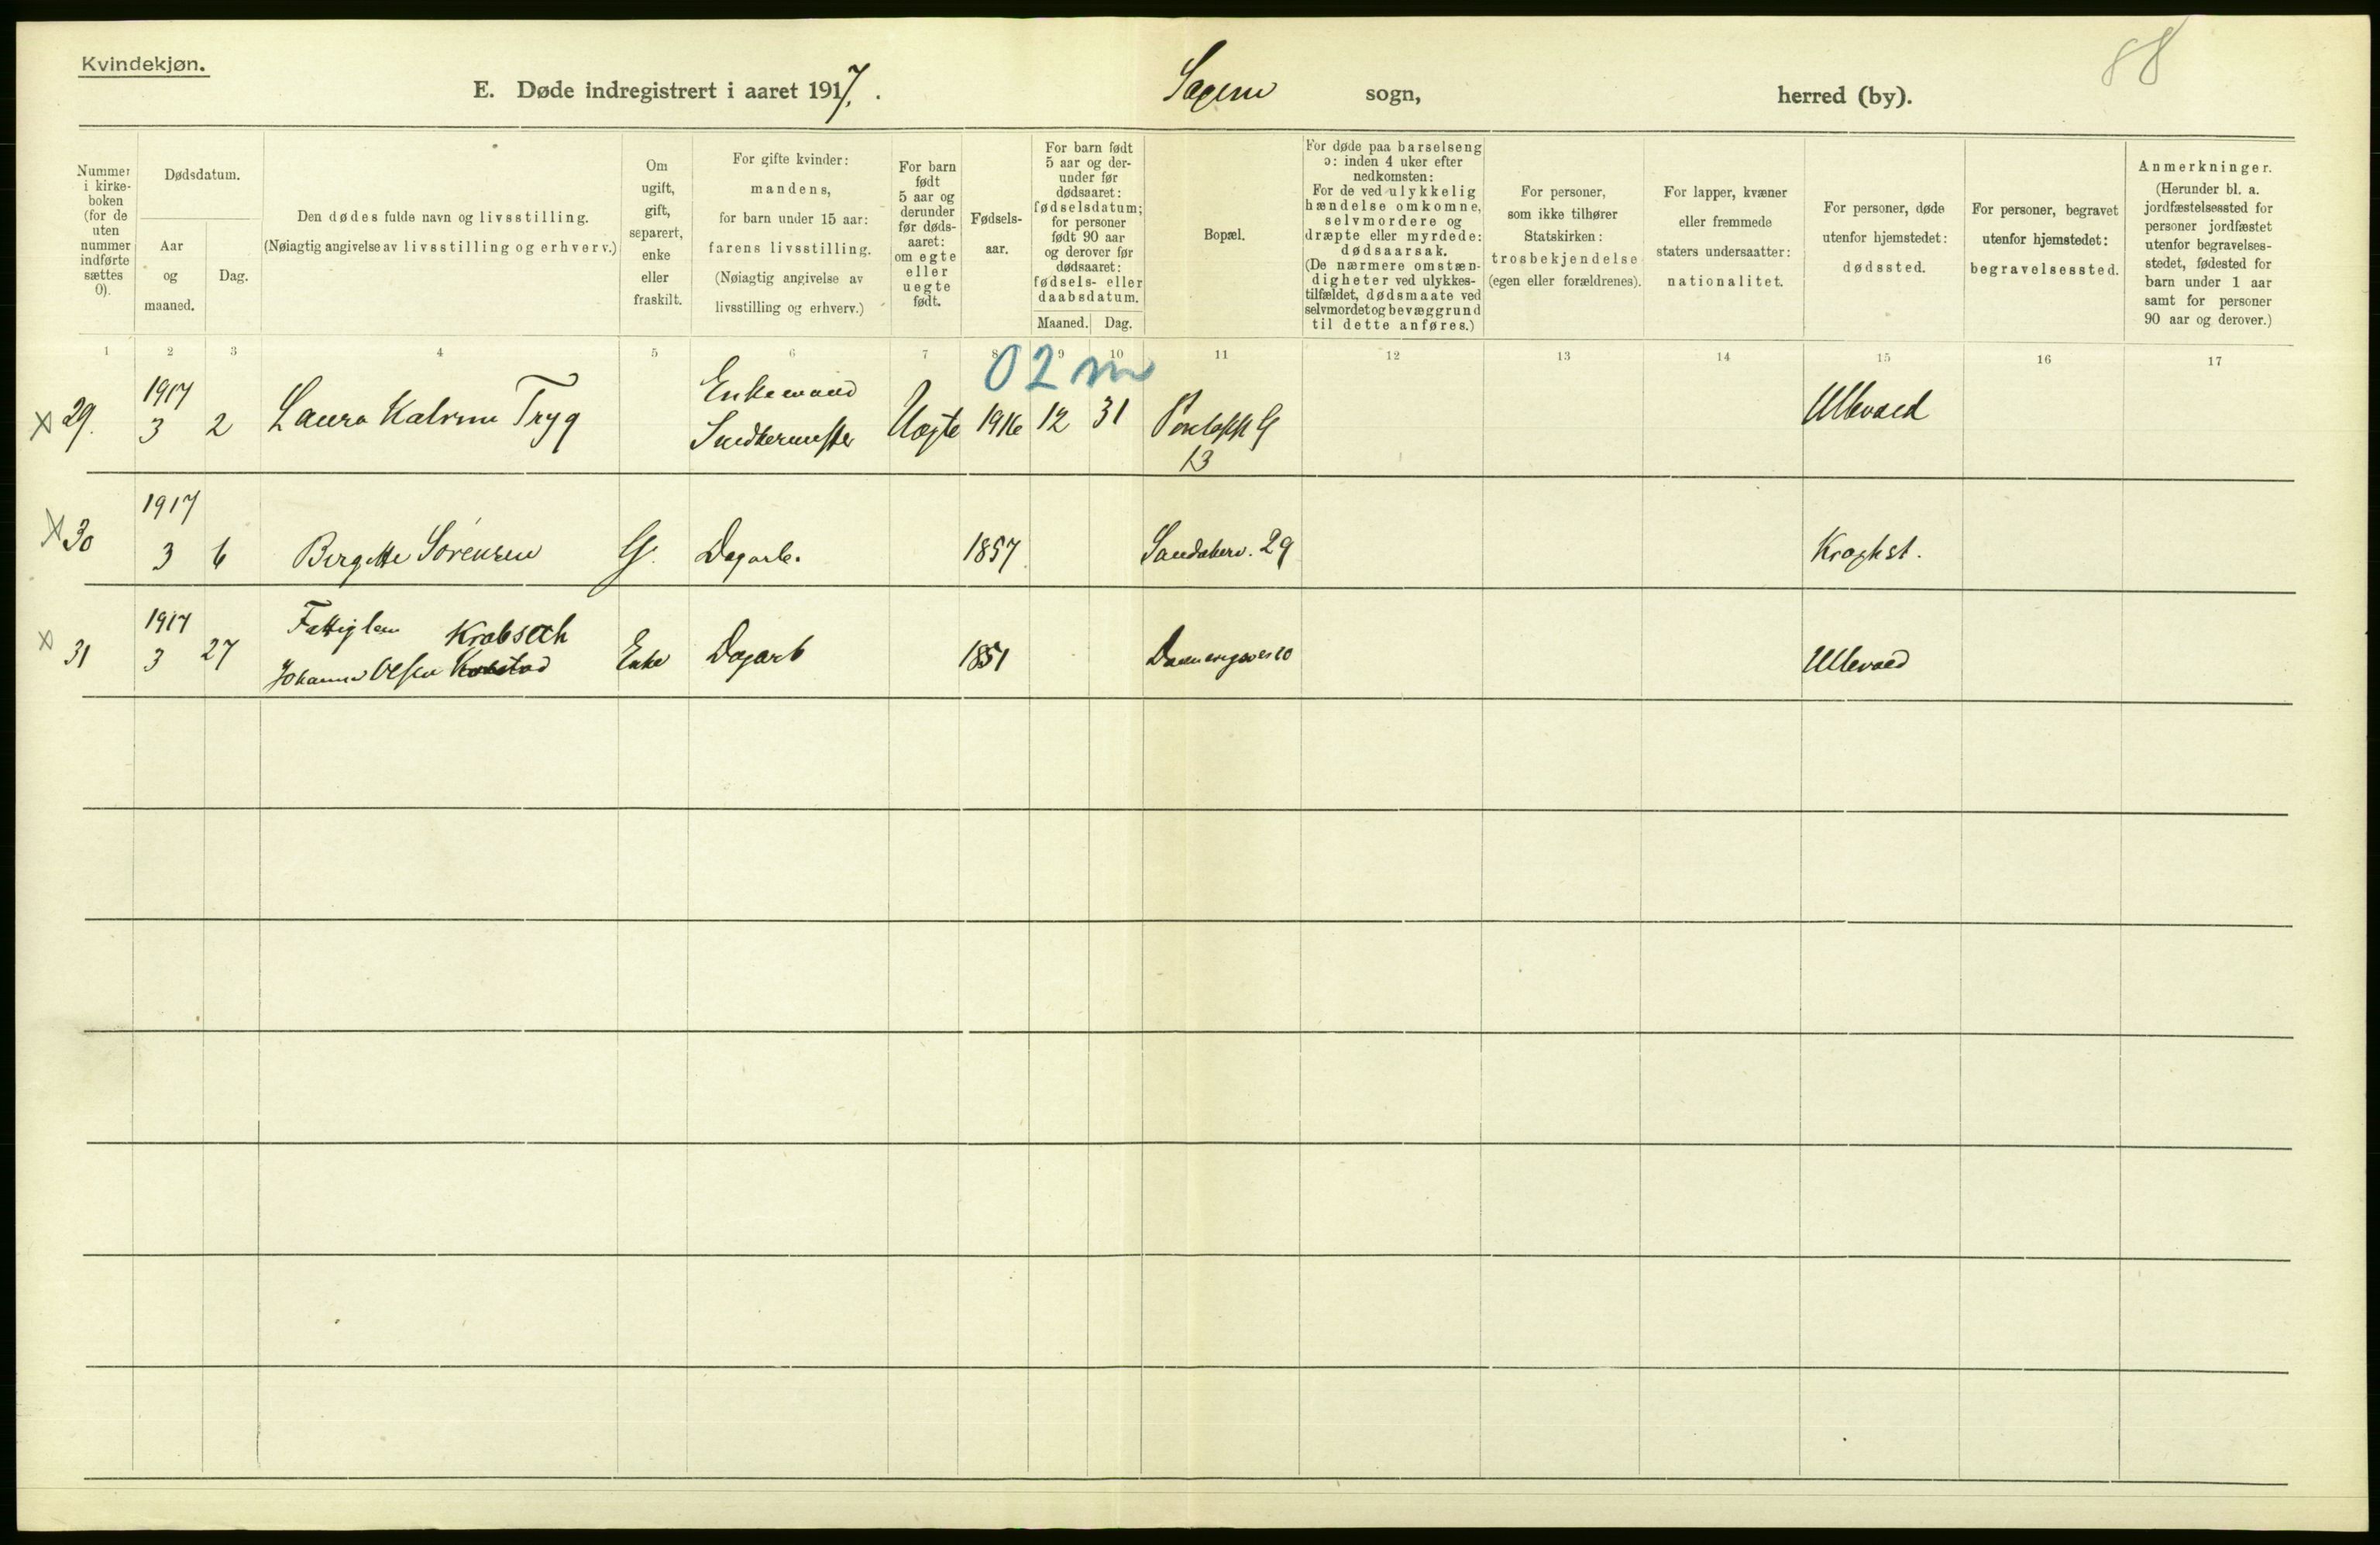 Kvindekjøn.
88
E. Døde indregistrert i aaret 1917. Sagene sogn, herred (by).
Nummer
i kirke-
boken
(for de
uten
nummer
indførte
sættes
0).
Dødsdatum.
Aar
og
maaned.
Dag.
Den dødes fulde navn og livsstilling.
(Nøiagtig angivelse av livsstilling og erhverv.)
Om
ugift,
gift,
separert,
enke
eller
fraskilt.
For gifte kvinder:
mandens,
for barn under 15 aar:
farens livsstilling.
(Nøiagtig angivelse av
livsstilling og erhverv.)
For barn
født
5 aar og
derunder
før døds-
aaret:
om egte
eller
uegte
født.
Fødsels-
aar.
For barn født
5 aar og der-
under før
dødsaaret:
fødselsdatum;
for personer
født 90 aar
og derover før
dødsaaret:
fødsels- eller
daabsdatum.
Maaned. Dag.
Bopæl.
For døde paa barselseng
ɔ: inden 4 uker efter
nedkomsten:
For de ved ulykkelig
hændelse omkomne,
selvmordere og
dræpte eller myrdede:
dødsaarsak.
(De nærmere omstæn-
digheter ved ulykkes-
tilfældet, dødsmaate ved
selvmordet og bevæggrund
til dette anføres.)
For personer,
som ikke tilhører
Statskirken:
trosbekjendelse
(egen eller forældrenes).
For lapper, kvæner
eller fremmede
staters undersaatter:
nationalitet.
For personer, døde
utenfor hjemstedet:
dødssted.
For personer, begravet
utenfor hjemstedet:
begravelsessted.
Anmerkninger.
(Herunder bl. a.
jordfæstelsessted for
personer jordfæstet
utenfor begravelses-
stedet, fødested for
barn under 1 aar
samt for personer
90 aar og derover.)
1 2 3 4 5 6 7 8 9 10 11 12 13 14 15 16 17
02 m
1917 Enkemand
x 29. 3 2 Laura Katrine Tryg Uegte 1916 12 31 13 Ullevaal
1917
x 30 3 6 Birgitte Sørensen G. Dagarb. 1857 Sandakerv. 29 Kroghst.
1917 Fattiglem Krabseth
x 31 3 27 Johanne Olsen Enke Dagarb 1851 Ullevaal